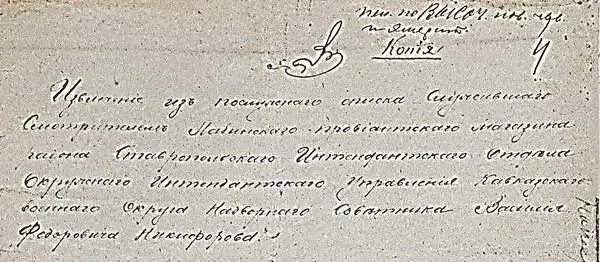 по Высоч.
Копія
Извлеченіе изъ послужнаго списка Служившаго
Смотрителемъ Лабинскаго провіантскаго магазина
района Ставропольскаго Интендантскаго Отдѣла
Окружнаго Интендантскаго Управленія Кавказскаго
военнаго Округа Надворнаго Совѣтника Василія
Ѳедоровича Никифорова.